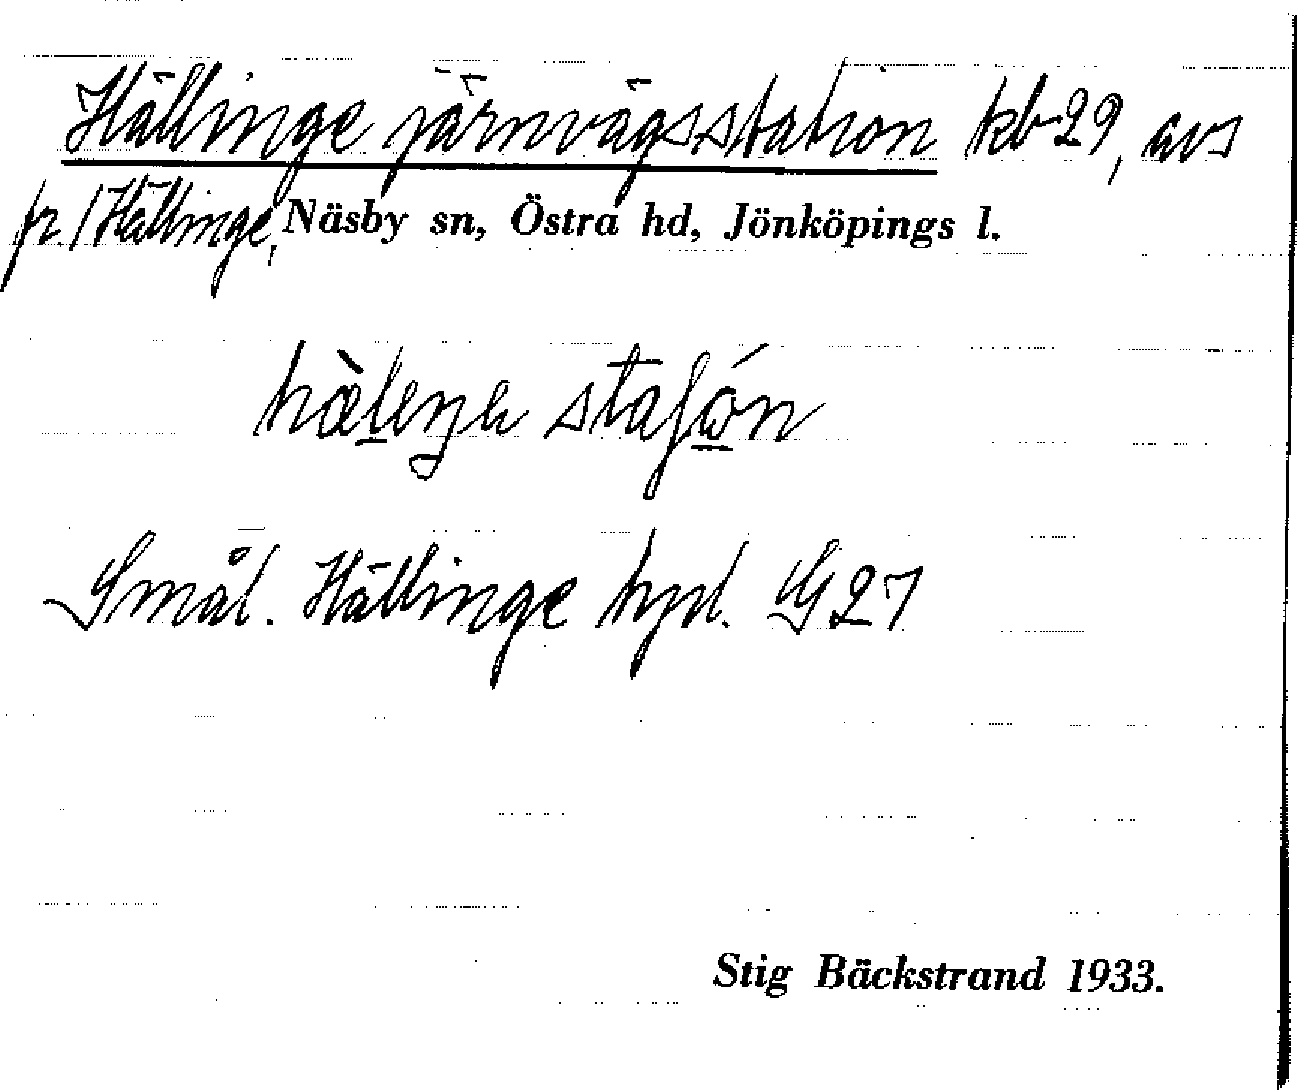 Hällinge järnvägsstation kb 29, avs
fr 1 Hällinge, Näsby sn, Östra hd, Jönköpings l.
Smål. Hällinge hpl. G 27
Stig Bäckstrand 1933.